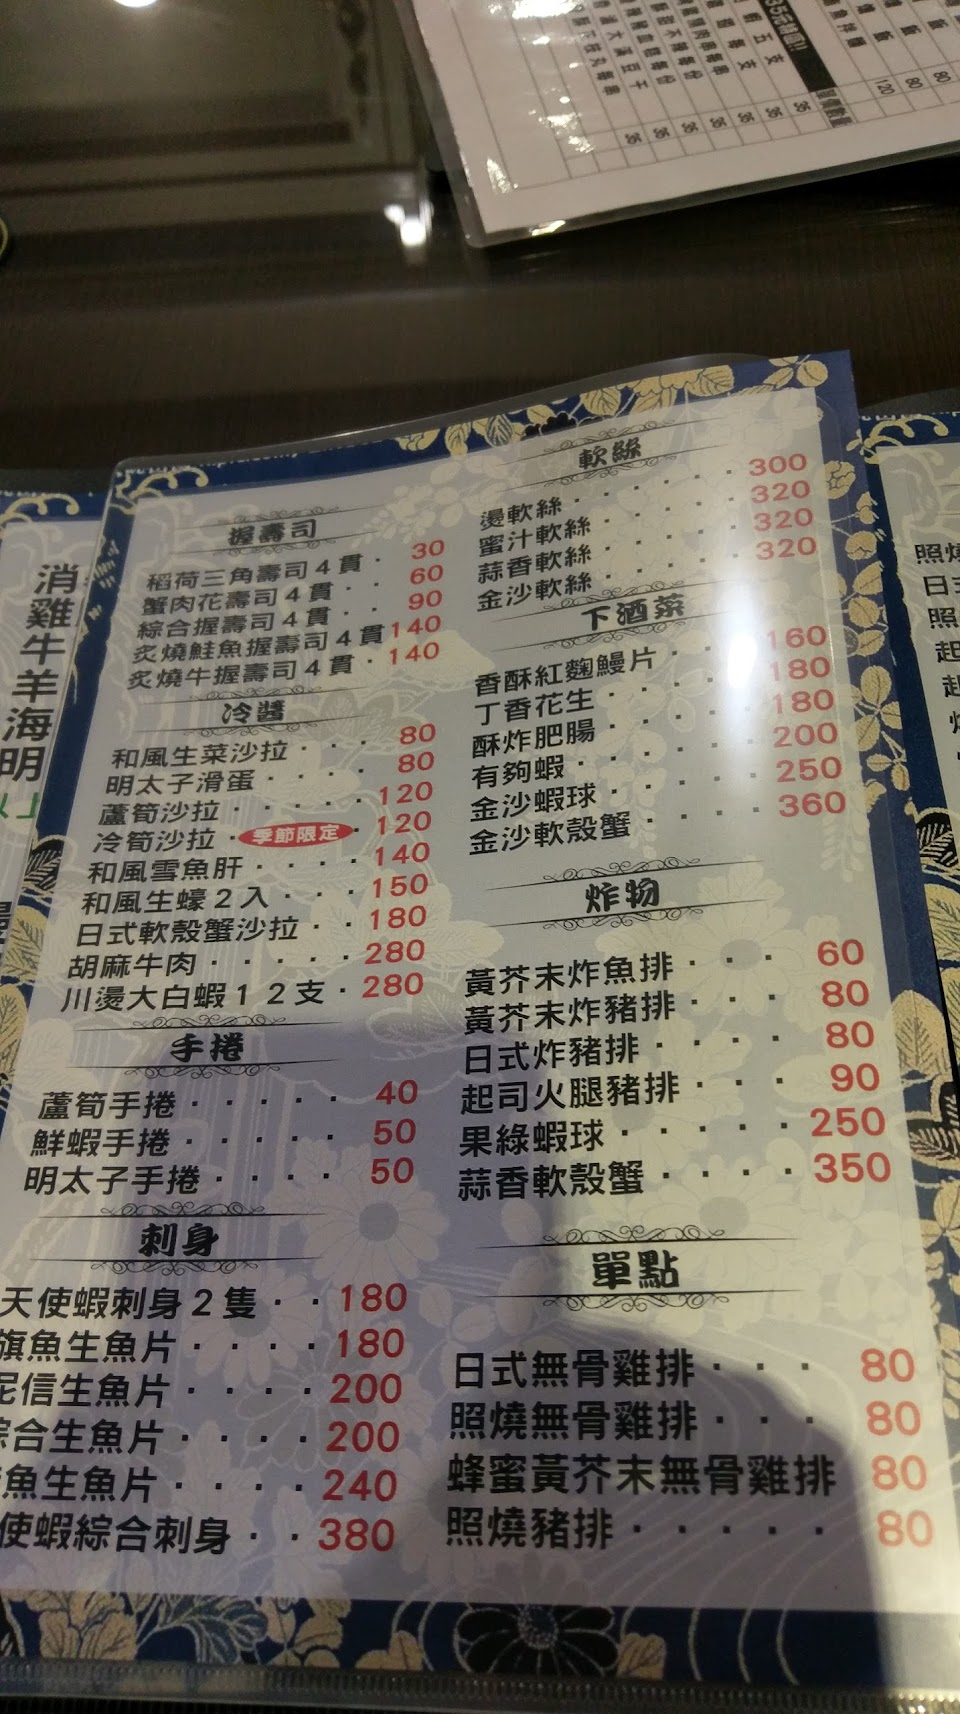 握壽司
稻荷三角壽司4貫 · 30
蟹肉花壽司4貫 · · 60
綜合握壽司4貫 · · 90
炙燒鮭魚握壽司4貫 140
炙燒牛握壽司4貫 · 140
冷醬
和風生菜沙拉 · · · 80
明太子滑蛋 · · · · 80
蘆筍沙拉 · · · · · 120
冷筍沙拉 · 季節限定 · 120
和風雪魚肝 · · · · 140
和風生蠔2入 · · · 150
日式軟殼蟹沙拉 · · 180
胡麻牛肉 · · · · · 280
川燙大白蝦12支 · 280
手捲
蘆筍手捲 · · · · · 40
鮮蝦手捲 · · · · · 50
明太子手捲 · · · · 50
刺身
天使蝦刺身2隻 · · 180
旗魚生魚片 · · · · 180
信生魚片 · · · · 200
綜合生魚片 · · · · 200
魚生魚片 · · · · 240
使蝦綜合刺身 · · 380
軟絲
燙軟絲 · · · · · · 300
蜜汁軟絲 · · · · · 320
蒜香軟絲 · · · · · 320
金沙軟絲 · · · · · 320
下酒菜
香酥紅麴鰻片 · · · 160
丁香花生 · · · · · 180
酥炸肥腸 · · · · · 180
有夠蝦 · · · · · · 200
金沙蝦球 · · · · · 250
金沙軟殼蟹 · · · · 360
炸物
黃芥末炸魚排 · · · 60
黃芥末炸豬排 · · · 80
日式炸豬排 · · · · 80
起司火腿豬排 · · · 90
果綠蝦球 · · · · · 250
蒜香軟殼蟹 · · · · 350
單點
日式無骨雞排 · · · 80
照燒無骨雞排 · · · 80
蜂蜜黃芥末無骨雞排 80
照燒豬排 · · · · · 80
消
雞
牛
羊
海
明